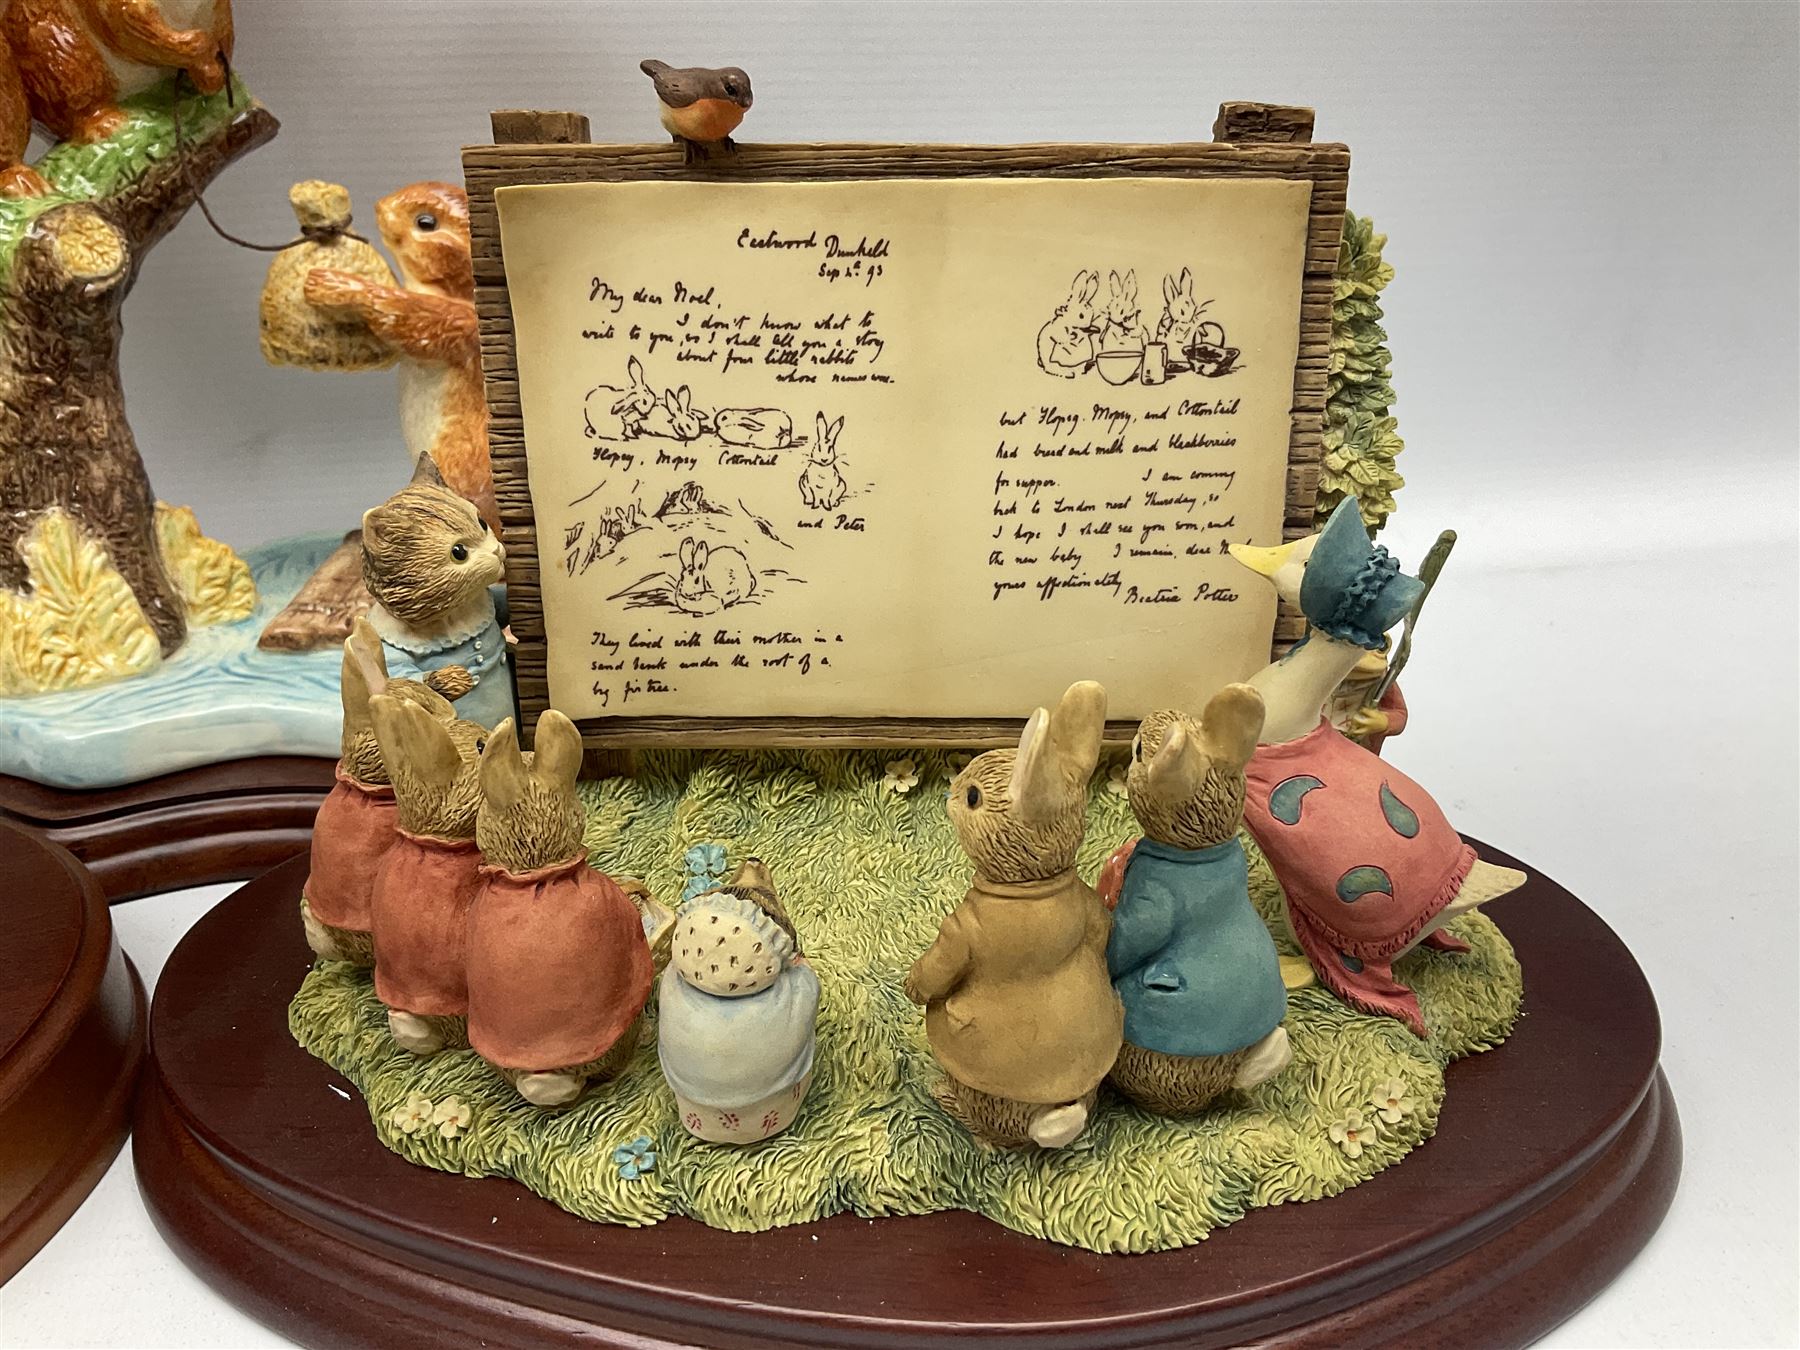 Eastwood Dunkeld
Sep 4th 93
My dear Noel,
I don't know what to
write to you, so I shall tell you a story
about four little rabbits
whose names were.
Flopsy, Mopsy Cottontail
and Peter
They lived with their mother in a
sand bank under the root of a
big fir tree.
but Flopsy. Mopsy, and Cottontail
had bread and milk and blackberries
for supper. I am coming
back to London next Thursday, so
I hope I shall see you soon, and
the new baby I remain, dear
yours affectionately
Beatrix Potter